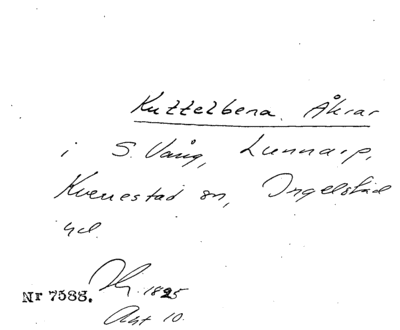 Kuttelbena. Åkrar
i S. Vång, Lunnarp,
Kverrestad sn, Ingelstad
hd.
Nr 7588. 1825
Akt 10.